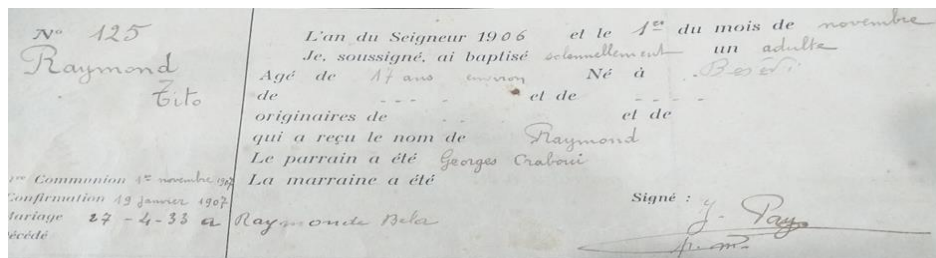 N° 125
Raymond
Tito
1re Communion 1er novembre 1907
Confirmation 19 janvier 1907
Mariage 27 - 4 - 33 a Raymonde Bela
Décédé
L'an du Seigneur 1906 et le 1er du mois de novembre
Je, soussigné, ai baptisé solennellement un adulte
Agé de 17 ans environ Né à
de - - - - et de - - - -
originaires de - - et de
qui a reçu le nom de Raymond
Le parrain a été Georges
La marraine a été
Signé : J. Pay